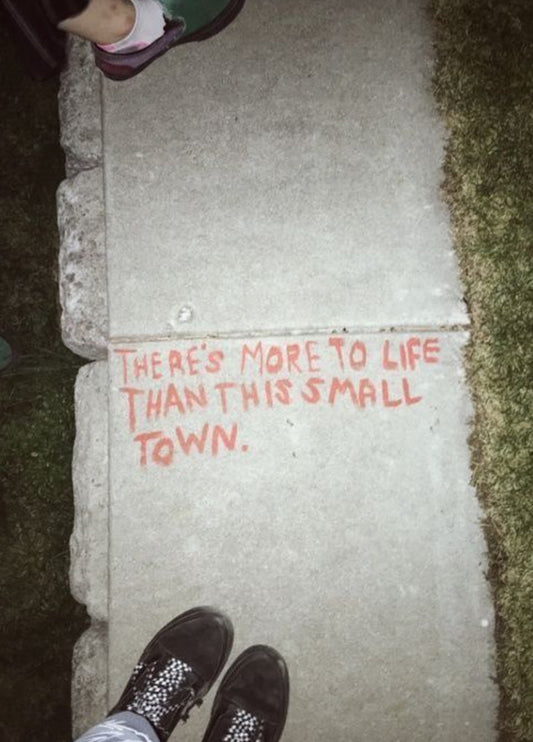 THERE'S MORE TO LIFE
THAN THIS SMALL
TOWN.